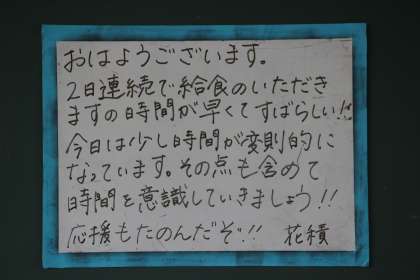 おはようございます。
2日連続で給食のいただき
ますの時間が早くてすばらしい!!
今日は少し時間が変則的に
なっています。その点も含めて
時間を意識していきましょう!!
応援もたのんだぞ!! 花積